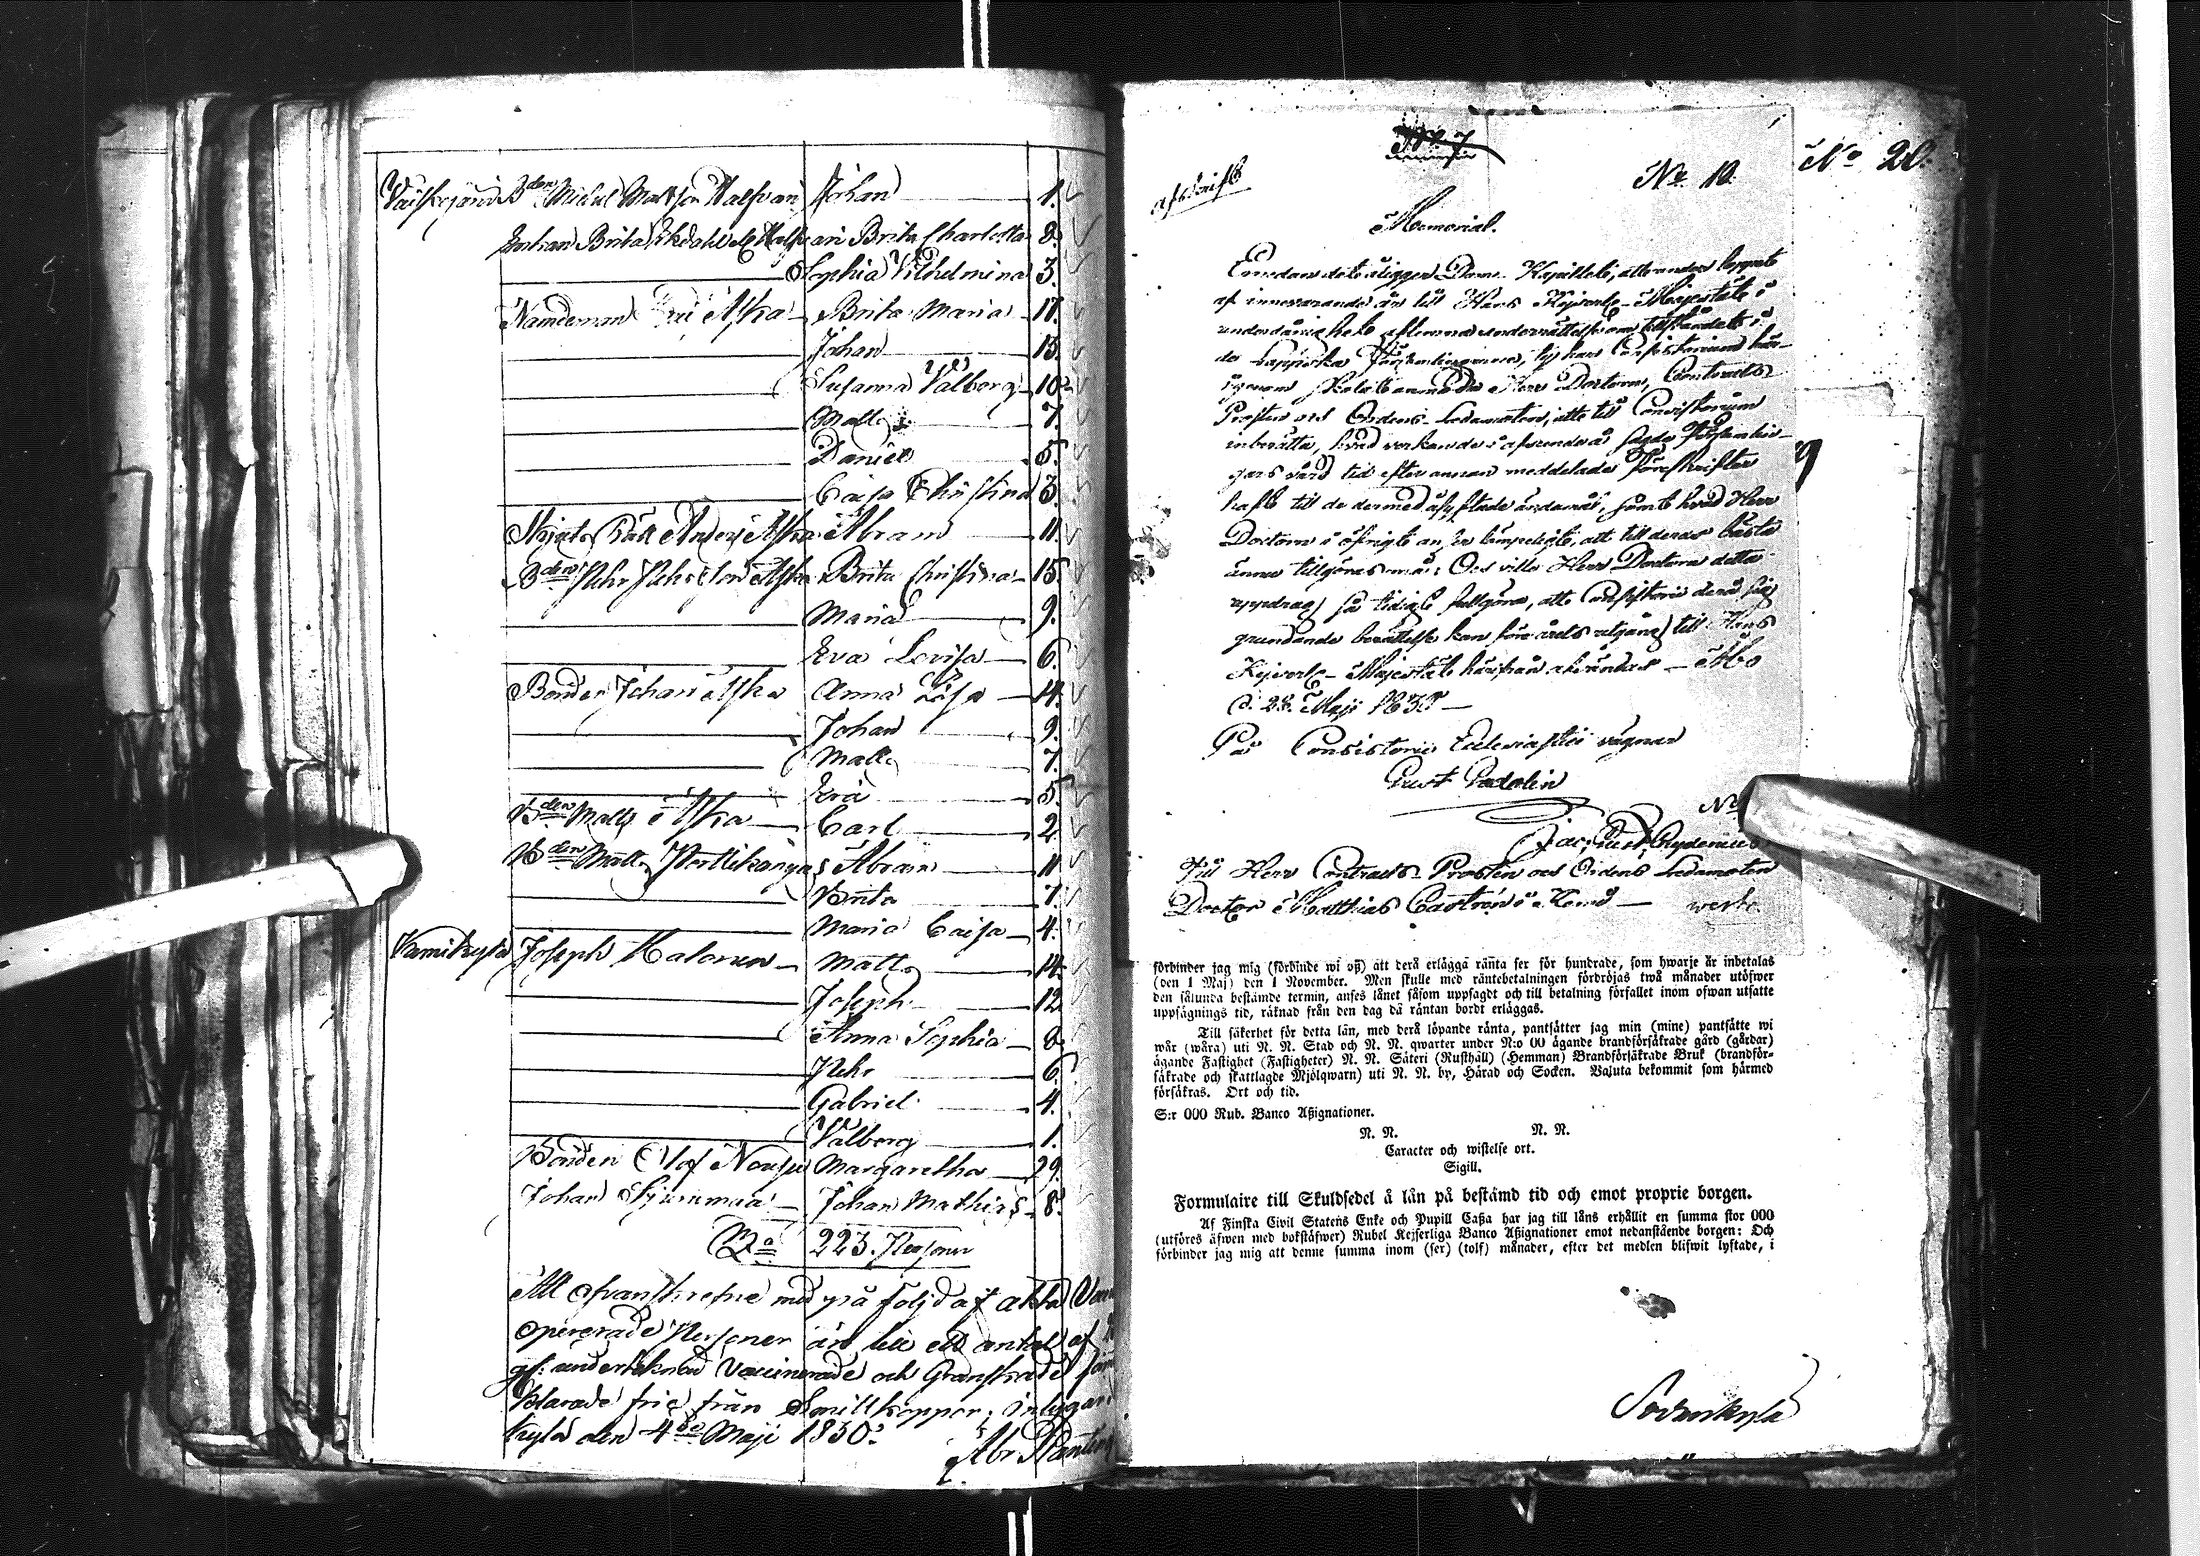 Johan 1.
Enkan Brita Ekdahl Brita Charlotta 8.
Sophia Vilhelmina 3.
Nämdeman Aska Brita Maria 17.
Johan 13.
Susanna Valborg 10.
Matts 7.
Daniel 5.
Caisa Christina 3.
Anders Aska Abram 11.
Aska Brita Christina 15.
Maria 9.
Eva Lovisa 6.
Bonden Johan Aska Anna Lisa 14.
Johan 9.
Matts 7.
Eva 5.
Bden Matts Aska Carl 2.
Bden Matts Abram 11.
Brita 7.
Maria Caisa 4.
Joseph Halonen Matts 14.
Joseph 12.
Anna Sophia 8.
Pehr 6.
Gabriel 4.
Valborg 1.
Bonden Olof Margaretha 29.
Johan Johan Mathias 8.
223. Personer
opererade Personer än till ett antal af
undertecknad Vaccinerade och Granskade
klarade frie från Smittkoppor;
kylä den 4de Maji 1830.
Abr
No 7
No 10.
No 20.
afskrift
Memorial.
Emedan det åligger Dom Kapitlet, att under loppet
af innevarande år till Hans Kejserl. Majestät i
underdånighet aflemna underrättelse om tillståndet i
de Lappska Församlingarne,
igenom skolat anmoda Herr Doctorn, Contracts
Prosten och Ordens-Ledamoten, att till Consistorium
inberätta, hvad verkan de i afseende å sagde Församlin-
gars vård tid efter annan meddelade Föreskrifter
haft till de dermed åsyftade ändamål, samt hvad Herr
Doctorn i öfrigt anser lämpeligt, att till deras bästa
ännu tillgöras må; Och ville Herr Doctorn detta
uppdrag så tidigt fullgöra, att Consistorii derå sig
grundande berättelse kan före årets utgång till Hans
Kejserl. Majestät härifrån afsändas — Åbo
d. 28. Maji 1830 —
På Consistorii Ecclesiastici vägnar
Gust Gadolin
Jac. Gust. Crydenius
Till Herr Contracts-Prosten och Ordens Ledamoten
Doctor Matthias Castrén i Kemi —
förbinder jag mig (förbinde wi oß) att derå erlägga ränta sex för hundrade, som hwarje år inbetalas
(den 1 Maj) den 1 November. Men skulle med räntebetalningen fördröjas twå månader utöfwer
den sålunda bestämde termin, anses lånet såsom uppsagdt och till betalning förfallet inom ofwan utsatte
uppsägnings tid, räknad från den dag då räntan bordt erläggas.
Till säkerhet för detta lån, med derå löpande ränta, pantsätter jag min (mine) pantsätte wi
wår (wåra) uti N. N. Stad och N. N. qwarter under N:o 00 ägande brandförsäkrade gård (gårdar)
ägande Fastighet (Fastigheter) N. N. Säteri (Rusthåll) (Hemman) Brandförsäkrade Bruk (brandför-
säkrade och skattlagde Mjölqwarn) uti N. N. by, Härad och Socken. Valuta bekommit som härmed
försäkras. Ort och tid.
S:r 000 Rub. Banco Aßignationer.
N. N. N. N.
Caracter och wistelse ort.
Sigill.
Formulaire till Skuldsedel å lån på bestämd tid och emot proprie borgen.
Af Finska Civil Statens Enke och Pupill Caßa har jag till låns erhållit en summa stor 000
(utföres äfwen med bokstäfwer) Rubel Kejserliga Banco Aßignationer emot nedanstående borgen: Och
förbinder jag mig att denne summa inom (sex) (tolf) månader, efter det medlen blifwit lyftade, i
Sodankylä